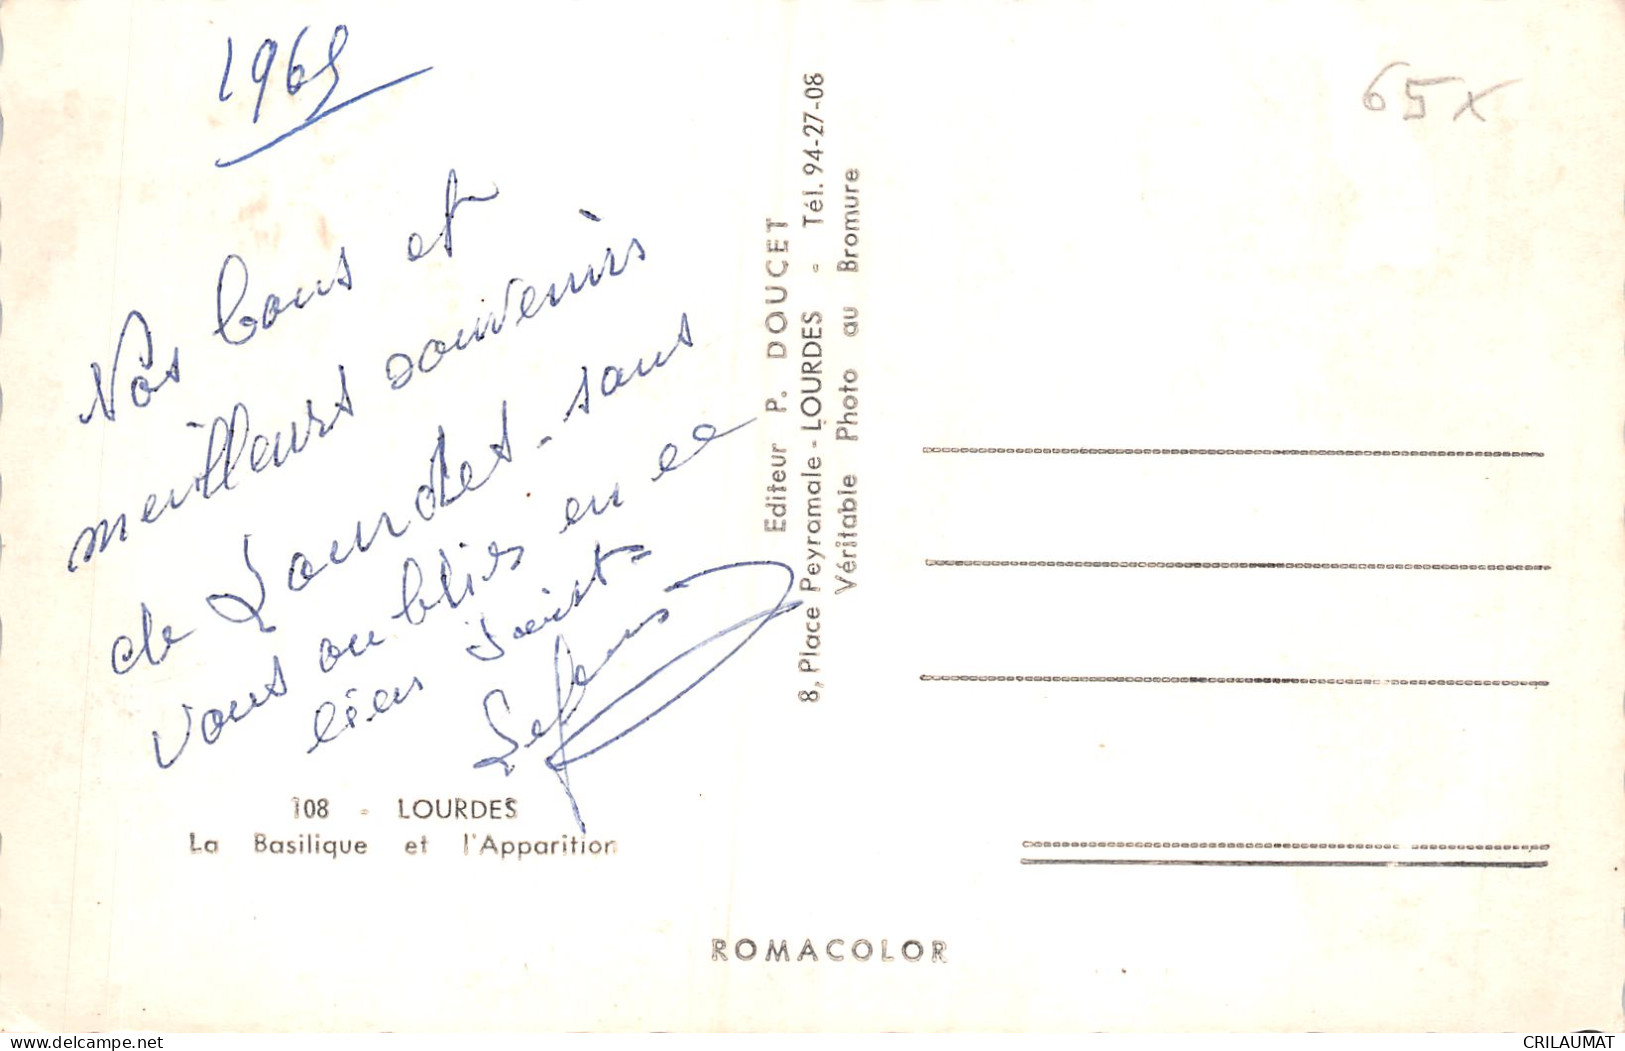 65 x
Nos bons et
meilleurs souvenirs
de Lourdes - sans
vous oublier en ce
lieu saint =
108 - LOURDES
La Basilique et l'Apparition
Editeur P. DOUCET
8, Place Peyramale - LOURDES - Tél. 94-27-08
Véritable Photo au Bromure
ROMACOLOR
www.delcampe.net
CRILAUMAT